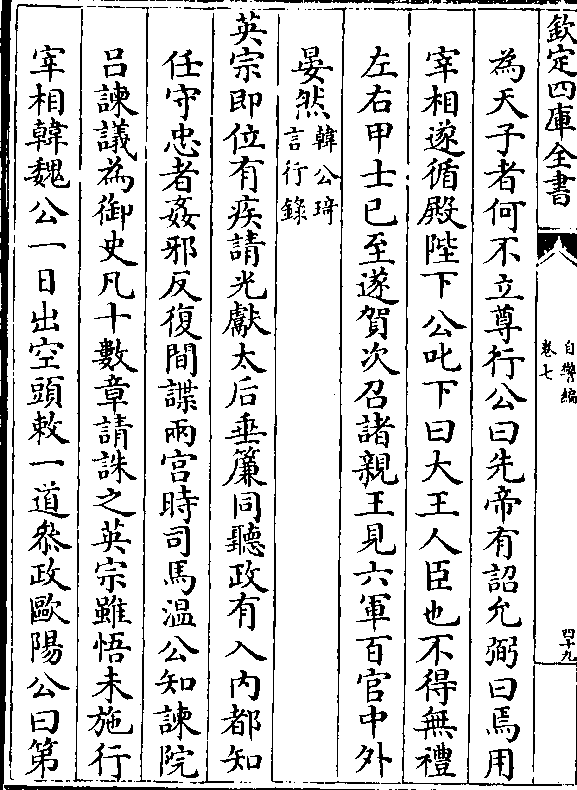 欽定四庫全書
自警編
卷七
四十九
為天子者何不立尊行公曰先帝有詔允弼曰焉用
宰相遂循殿陛下公叱下曰大王人臣也不得無禮
左右甲士已至遂賀次召諸親王見六軍百官中外
晏然韓公琦
言行錄
英宗即位有疾請光獻太后垂簾同聽政有入內都知
任守忠者姦邪反復間諜兩宮時司馬溫公知諫院
呂諫議為御史凡十數章請誅之英宗雖悟未施行
宰相韓魏公一日出空頭敕一道叅政歐陽公曰第